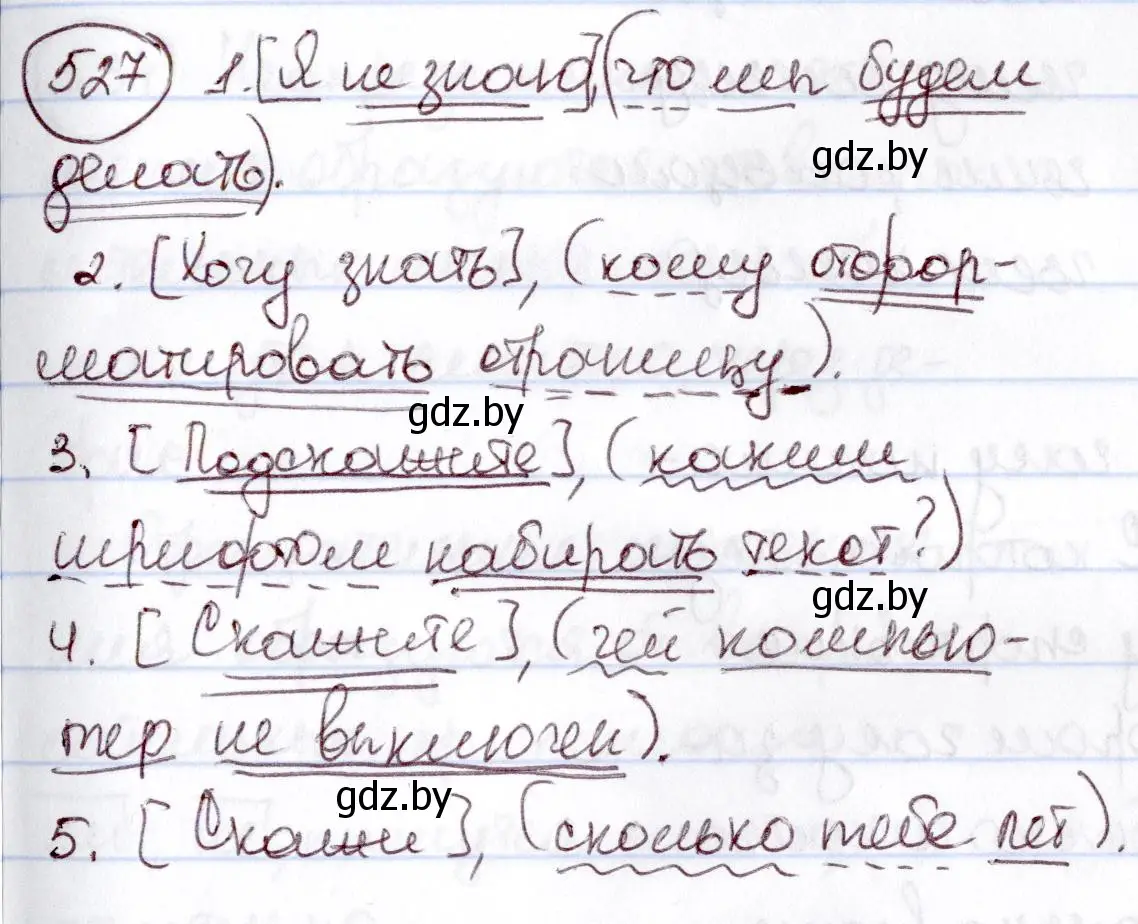 527 1. [Я не знаю], (что мы будем
gdz.by
делать).
2. [Хочу знать], (кому отфор-
матировать страницу).
gdz.by
3. [Подскажите], (каким
шрифтом набирать текст?)
gdz.by
4. [Скажите], (чей компью-
тер не выключен).
gdz.by
5. [Скажи], (сколько тебе лет).